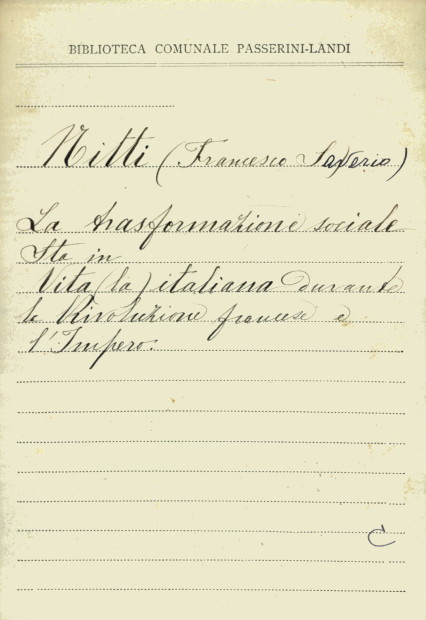 BIBLIOTECA COMUNALE PASSERINI-LANDI
Nitti (Francesco Saverio)
La trasformazione sociale
Sta in
Vita (la) italiana durante
la Rivoluzione francese e
l'Impero.
C